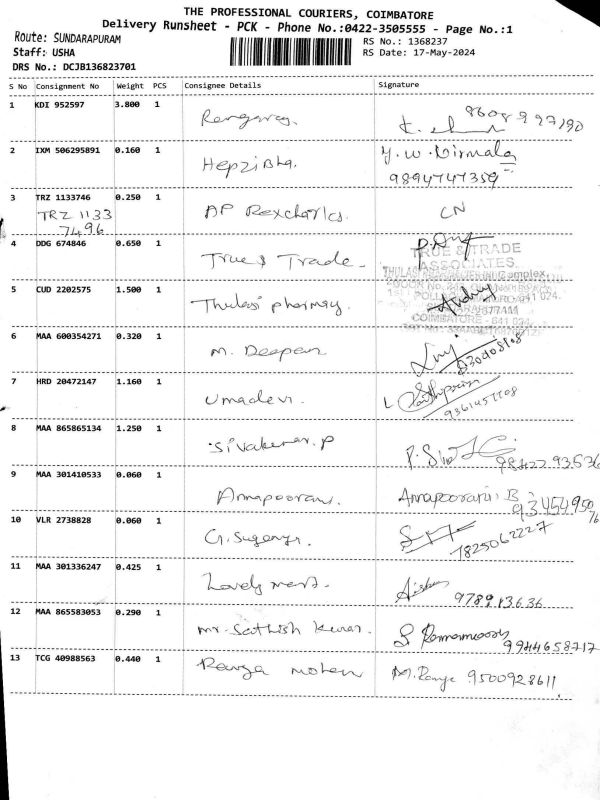 THE PROFESSIONAL COURIERS, COIMBATORE
Delivery Runsheet - PCK - Phone No.:0422-3505555 - Page No.:1
Route: SUNDARAPURAM
RS No.: 1368237
Staff: USHA
RS Date: 17-May-2024
DRS No.: DCJB136823701
S No Consignment No Weight PCS Consignee Details Signature
1 KDI 952597 3.800 1
Rengaraj.
2 IXM 506295891 0.160 1
Hepziba. Y. W. Nirmala
9894747359
3 TRZ 1133746 0.250 1
TRZ 1133
7496
AP Rexcharles. CN
4 DDG 674846 0.650 1
True & Trade
TRUE & TRADE
ASSOCIATES
5 CUD 2202575 1.500 1
Thulasi pharmacy.
COIMBATORE - 641 024
6 MAA 600354271 0.320 1
M. Deepan
7 HRD 20472147 1.160 1
Umadevi.
9361457708
8 MAA 865865134 1.250 1
Sivakumar. P
9 MAA 301410533 0.060 1
Annapoorani. Annapoorani. B
10 VLR 2738828 0.060 1
G. Suganya.
7825062227
11 MAA 301336247 0.425 1
Lovely mens.
12 MAA 865583053 0.290 1
Mr. Sathish Kumar. S Ramamoorthy
9944658717
13 TCG 40988563 0.440 1
Ranga mohan M. Ranga 9500928611